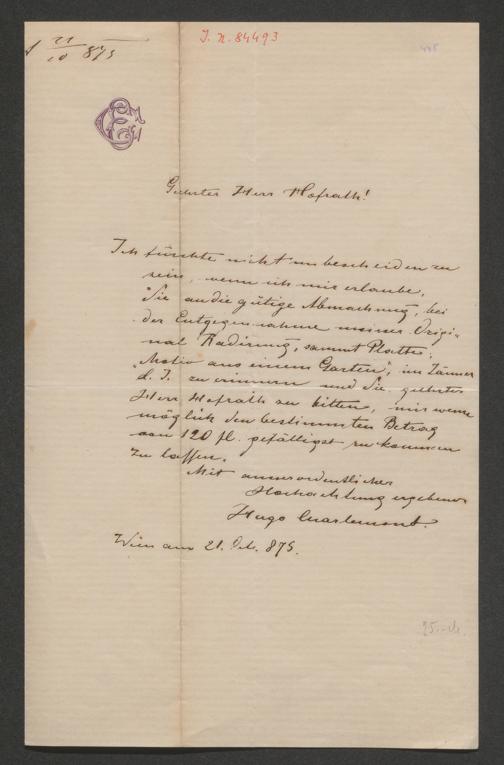 21/10 875
I. N. 84493
Geehrter Herr Hofrath!
Ich fürchte nicht unbescheiden zu
sein, wenn ich mir erlaube,
Sie an die gütige Abmachung, bei
der Entgegennahme meiner Origi-
nal Radirung, sammt Platte,
"Motiv aus einem Garten", im Jänner
d. J. zu erinnern und Sie, geehrter
Herr Hofrath zu bitten, mir wenn
möglich den bestimmten Betrag
von 120 fl. gefälligst zukommen
zu lassen.
Mit ausserordentlicher
Hochachtung ergebener
Hugo Charlemont.
Wien am 21. Oct. 875.